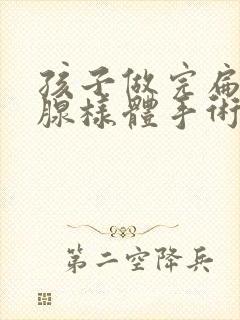 孩子做完扁
腺樣體手術
第二空降兵